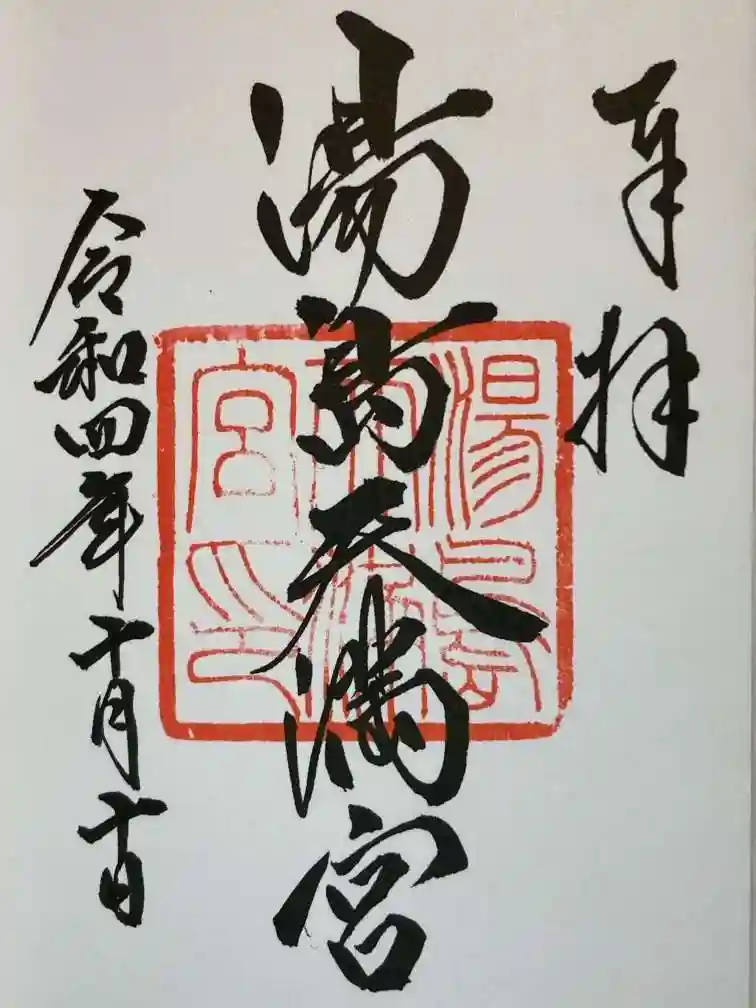 奉拝
湯島天満宮
令和四年十月十日
湯島
天満
宮印